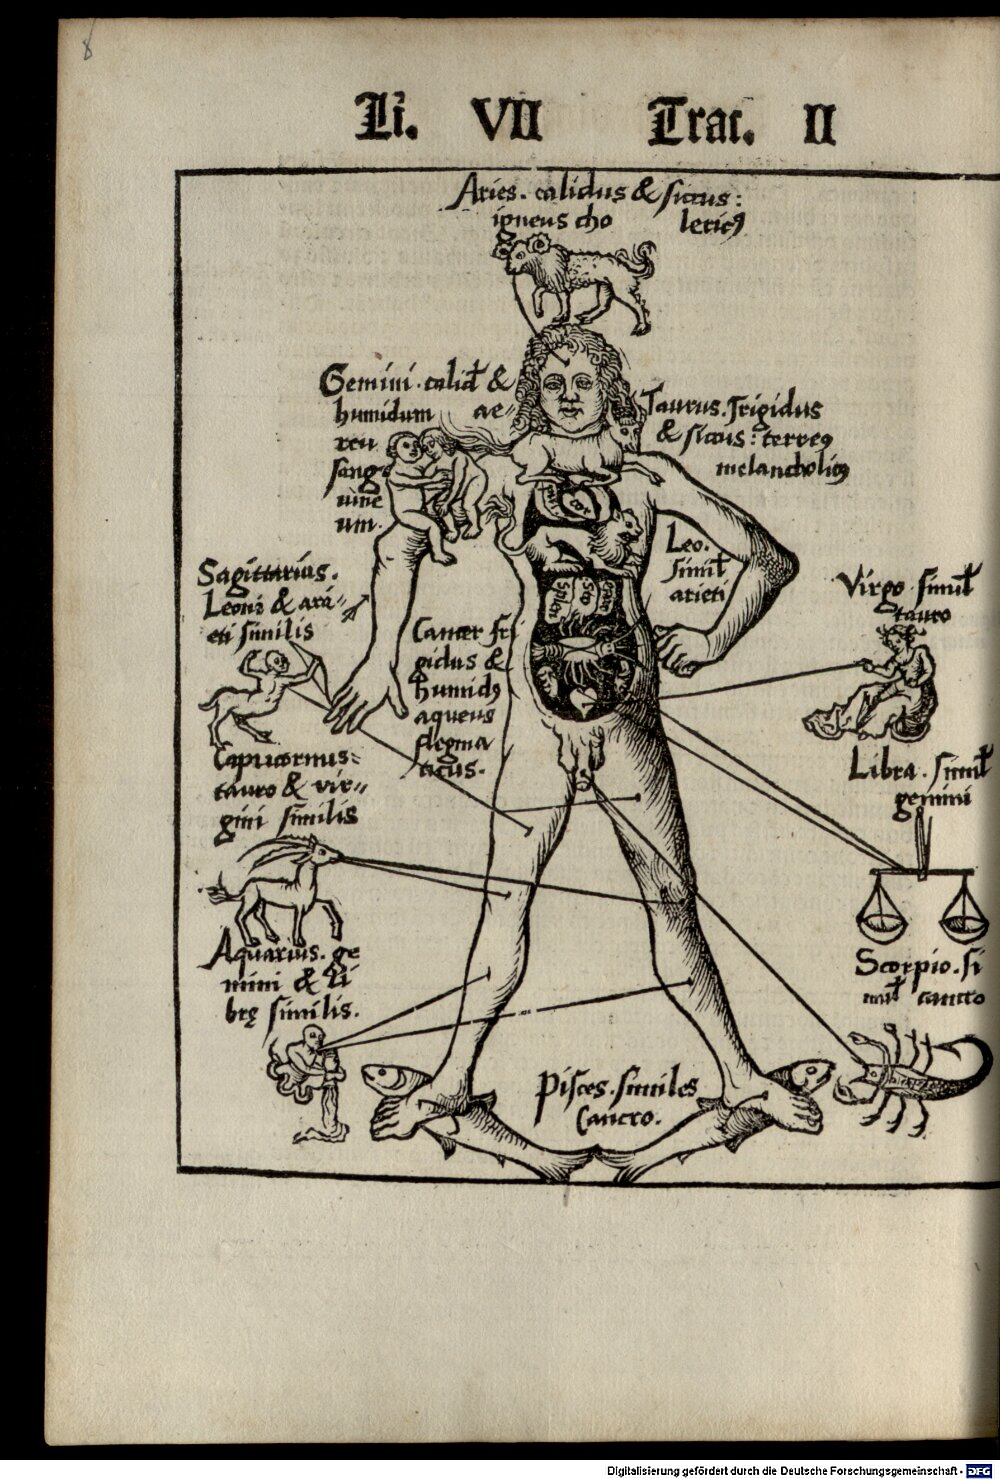 8
Li. VII Trac. II
Aries. calidus & siccus:
igneus cho lericꝰ
Gemini. calidꝰ &
humidum ae-
reu
sang
uine
um.
Taurus. frigidus
& siccus: terreꝰ
melancholicꝰ
Leo.
simil̄
arieti
Sagittarius.
Leoni & ari-
eti similis
Cancer fri
gidus &
humidꝰ
aqueus
flegma
ticus.
cor
Splen
Sto
Virgo. simil̄
tauro
Capricornus-
tauro & vir-
gini similis
Libra. simil̄
gemini
Aquarius. ge
mini & li
brę similis.
Scorpio. si
mil̄ cancro
Pisces. similes
Cancro.
Digitalisierung gefördert durch die Deutsche Forschungsgemeinschaft - DFG